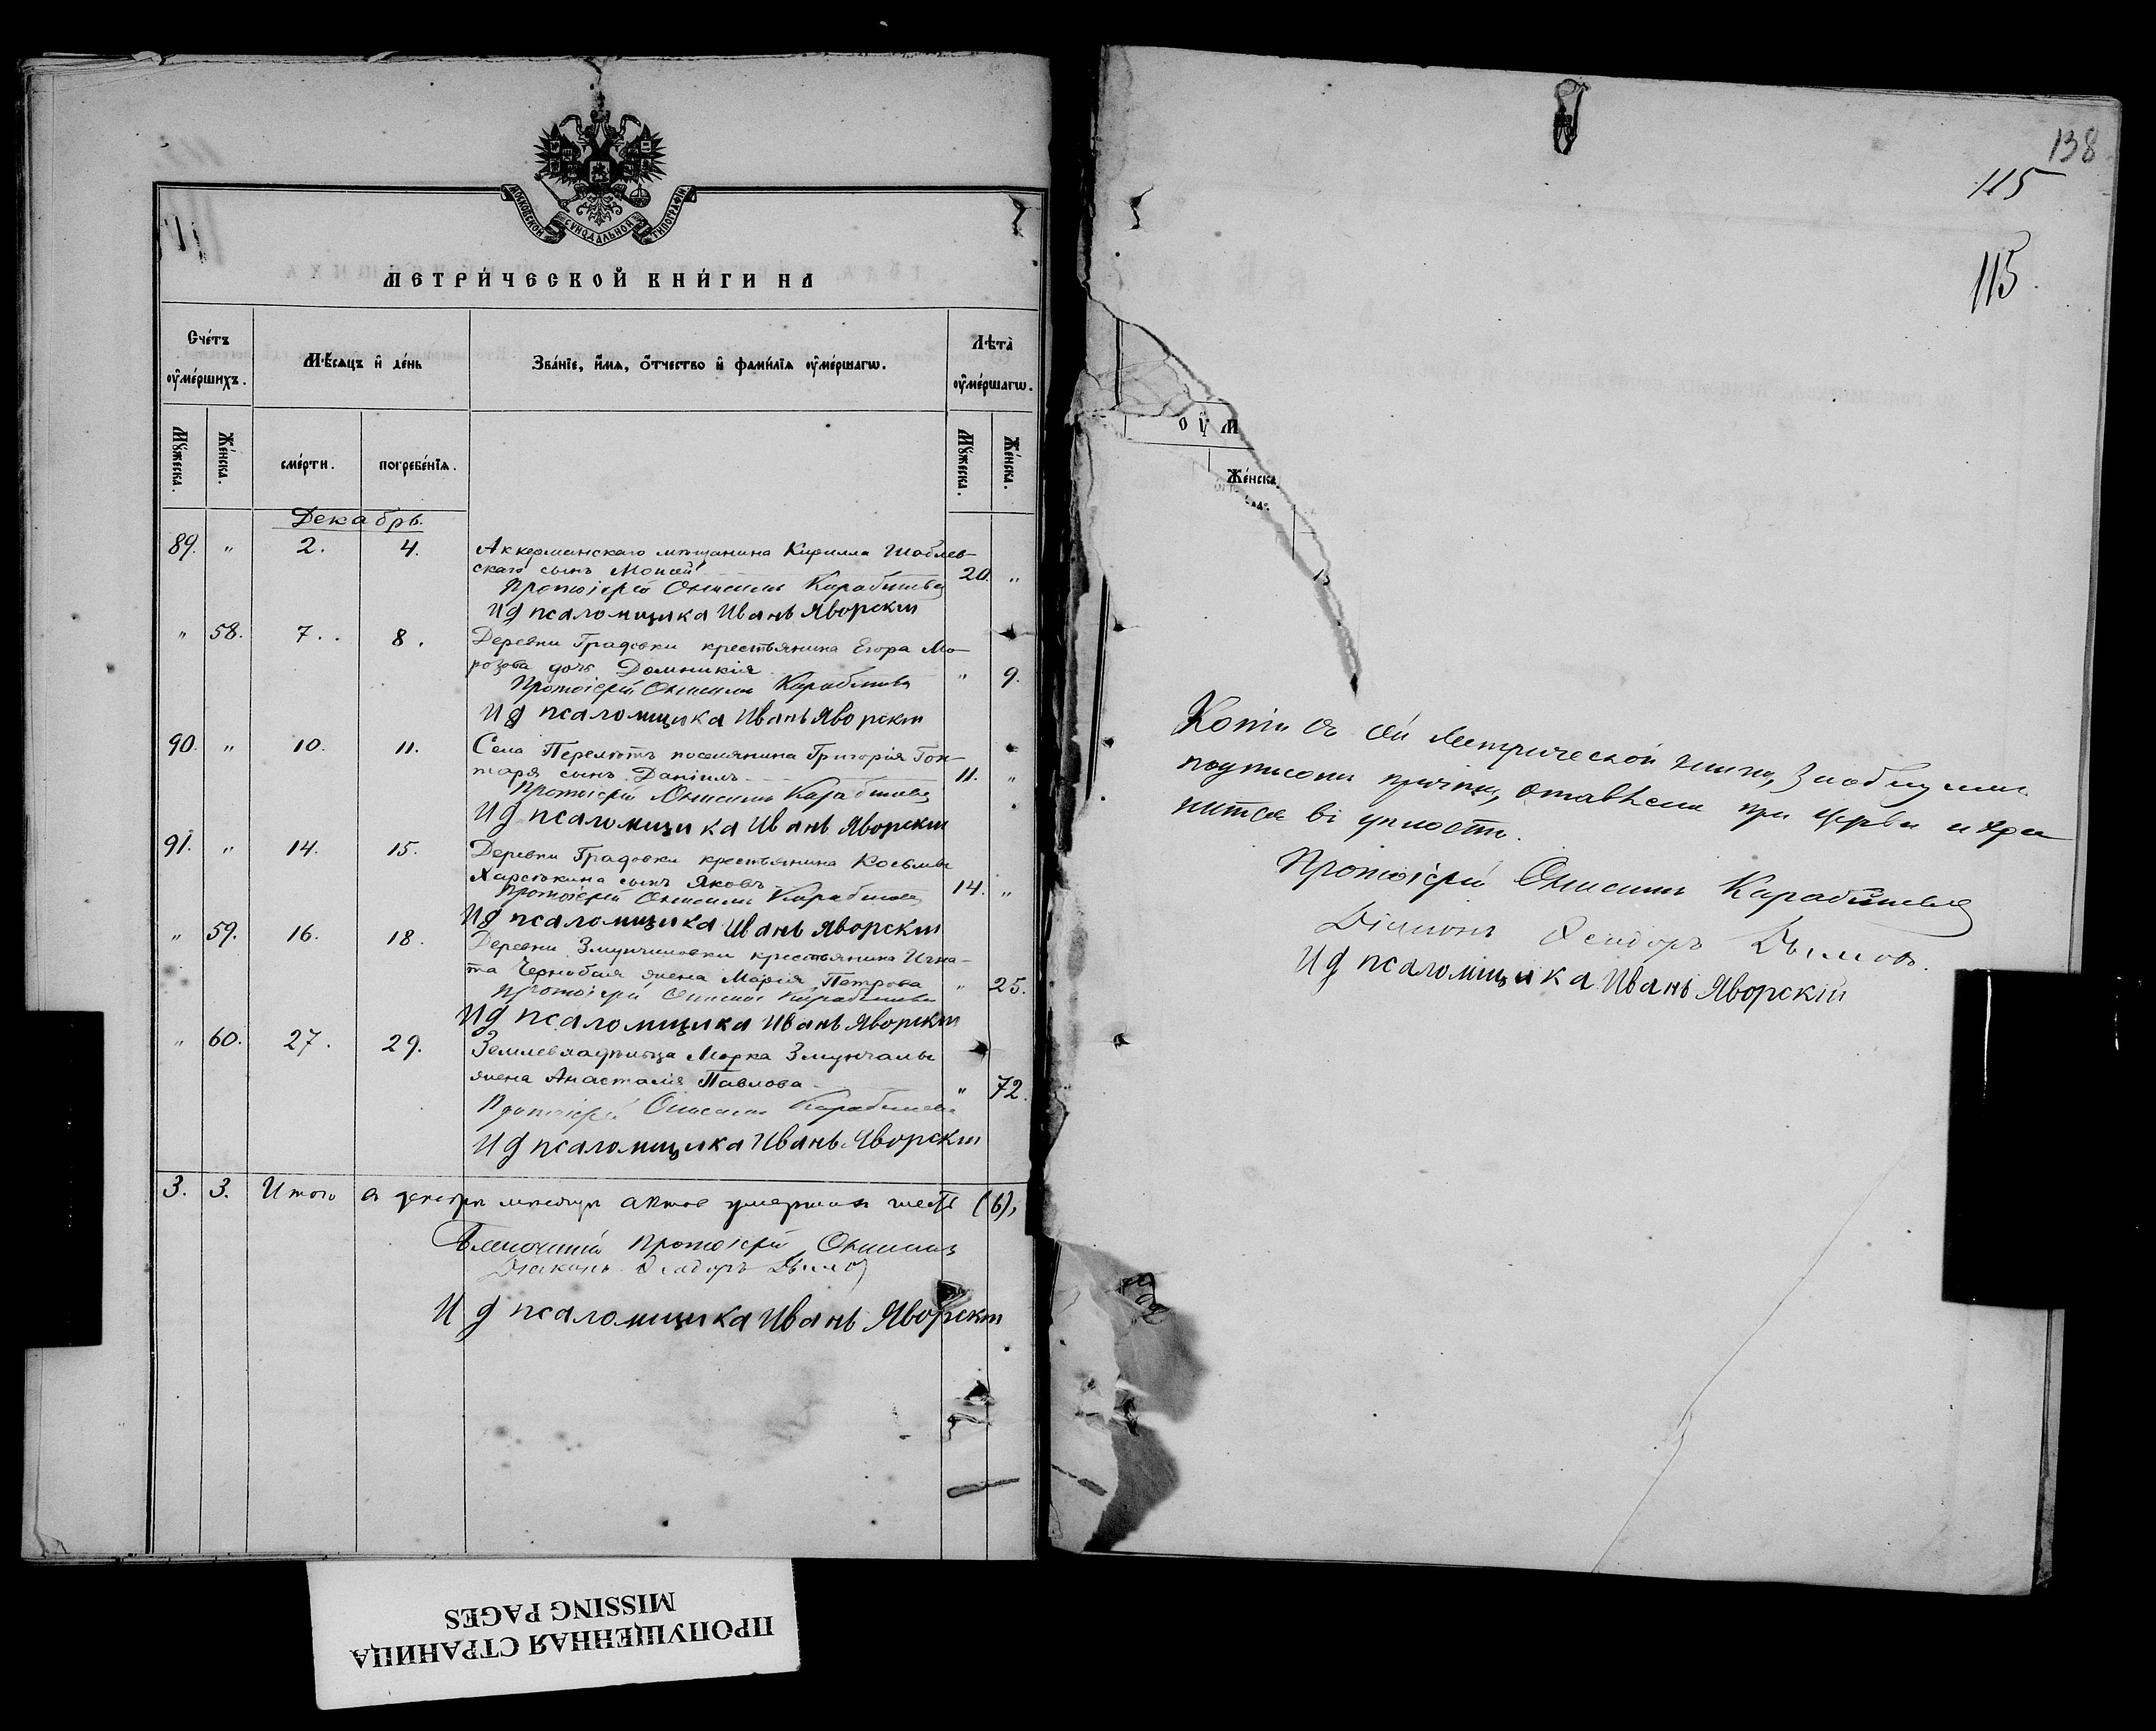 МОСКОВСКОЙ СѴНОДАЛЬНОЙ ТИПОГРАФІИ
МЕТРИ́ЧЕСКОЙ КНИ́ГИ НА
Сче́тъ ᲂу҆ме́ршихъ.
Мѣ́сяцъ и҆ де́нь
Зва́нїе, и҆́мѧ, ѻ҆́тчество и҆ фами́лїѧ ᲂу҆ме́ршагѡ.
Лѣта̀ ᲂу҆ме́ршагѡ.
Мꙋ́жеска.
Же́нска.
сме́рти.
погребе́нїѧ.
Мꙋ́жеска.
Же́нска.
Декабрь.
89. " 2. 4. Аккерманскаго мѣщанина Кирилла Шаблев-
скаго сынъ Моисей 20. "
Протоіерей Онисимъ
И д псаломщика Иванъ Яворскій
" 58. 7. 8. Деревни Градовки крестьянина Егора Мо-
розова дочь Домникія " 9.
Протоіерей Онисимъ
И д псаломщика Иванъ Яворскій
90. " 10. 11. Села поселянина Григорія Гон-
таря сынъ Даніилъ 11. "
Протоіерей Онисимъ
И д псаломщика Иванъ Яворскій
91. " 14. 15. Деревни Градовки крестьянина Косьмы
сынъ Яковъ 14. "
Протоіерей Онисимъ
И д псаломщика Иванъ Яворскій
" 59. 16. 18. Деревни Змунчиловки крестьянина Игна-
та Чернобая жена Марія Петрова " 25.
Протоіерей Онисимъ
И д псаломщика Иванъ Яворскій
" 60. 27. 29. Землевладѣльца Марка Змунчилы
жена Анастасія Павлова " 72.
Протоіерей Онисимъ
И д псаломщика Иванъ Яворскій
3. 3. Итого въ декабрѣ мѣсяцѣ актов умершихъ шесть (6),
Благочинный Протоіерей Онисимъ
Діаконъ Ѳеодоръ Дымов
И д псаломщика Иванъ Яворскій
138
115
115.
ᲂу҆м
Же́нска.
Копія съ сей Метрической книги, за
подписомъ причта, оставлена при церкви и хра-
нится въ цѣлости.
Протоіерей Онисимъ
Діаконъ Ѳеодоръ Дымовъ.
И д псаломщика Иванъ Яворскій
ПРОПУЩЕННАЯ СТРАНИЦА
MISSING PAGES